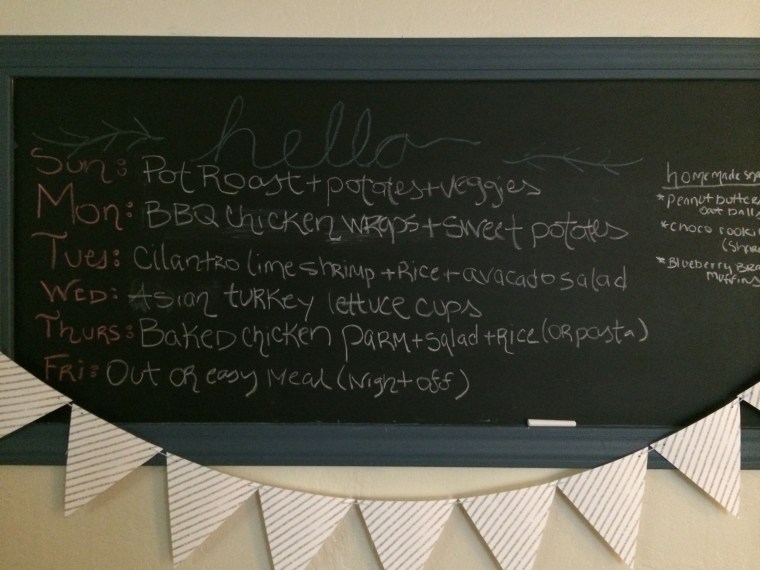 hello
Sun: Pot Roast + potatoes + veggies
Mon: BBQ chicken wraps + sweet potatoes
Tues: cilantro lime shrimp + Rice + avacado salad
Wed: Asian turkey lettuce cups
Thurs: Baked chicken parm + salad + Rice (or pasta)
Fri: Out or easy meal (night off)
homemade
* Peanut butter
oat balls
* choco
* Blueberry
muffins